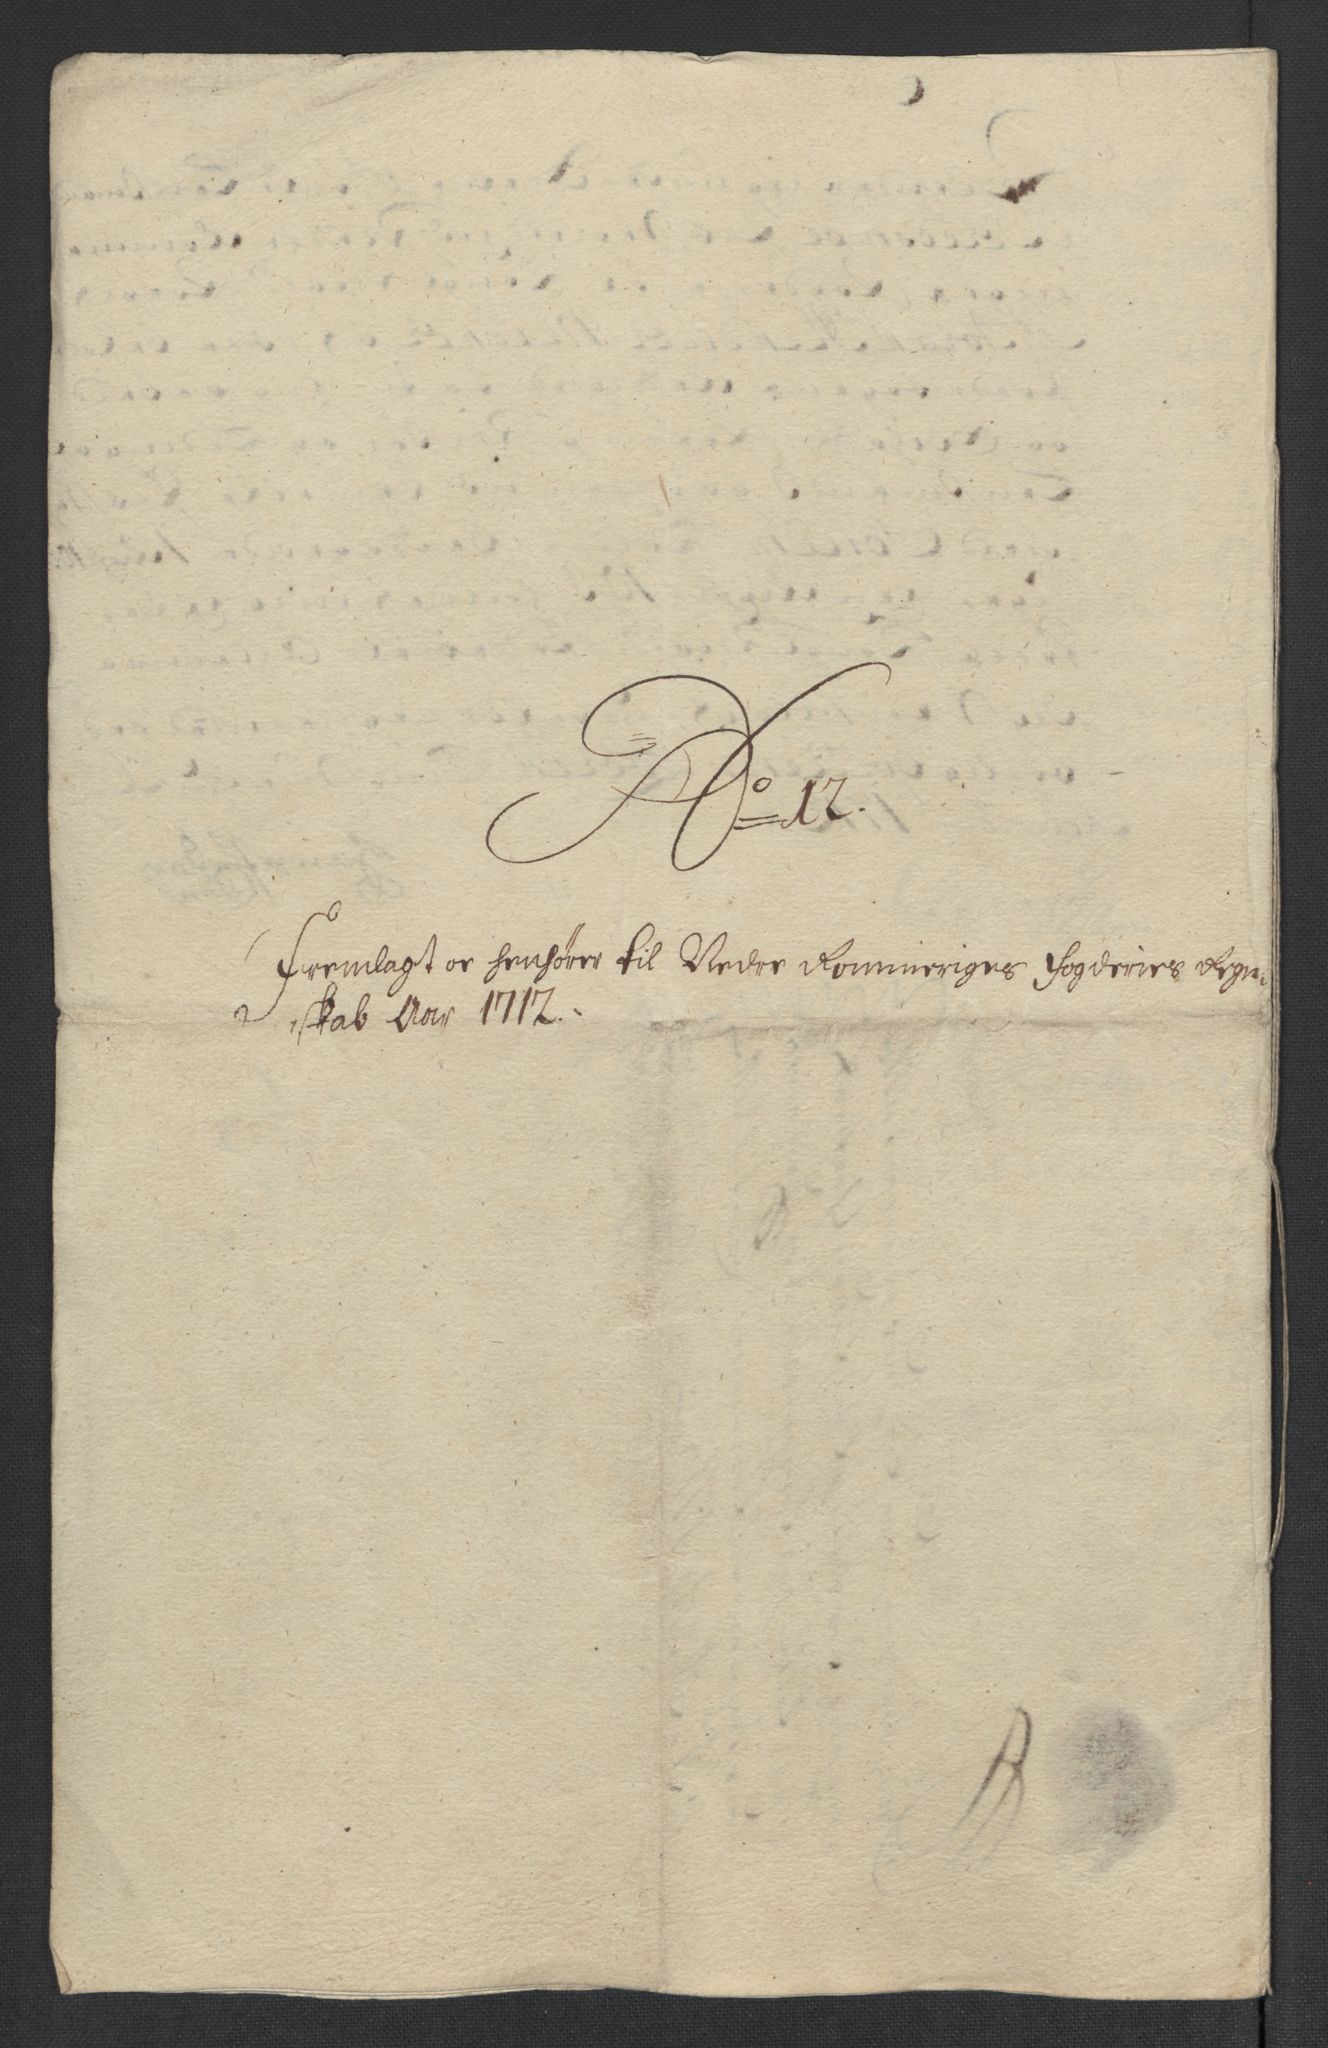 No 12.
Fremlagt oc henhører til Nedre Rommeriges Fogderies Regn-
skab Aar 1712.